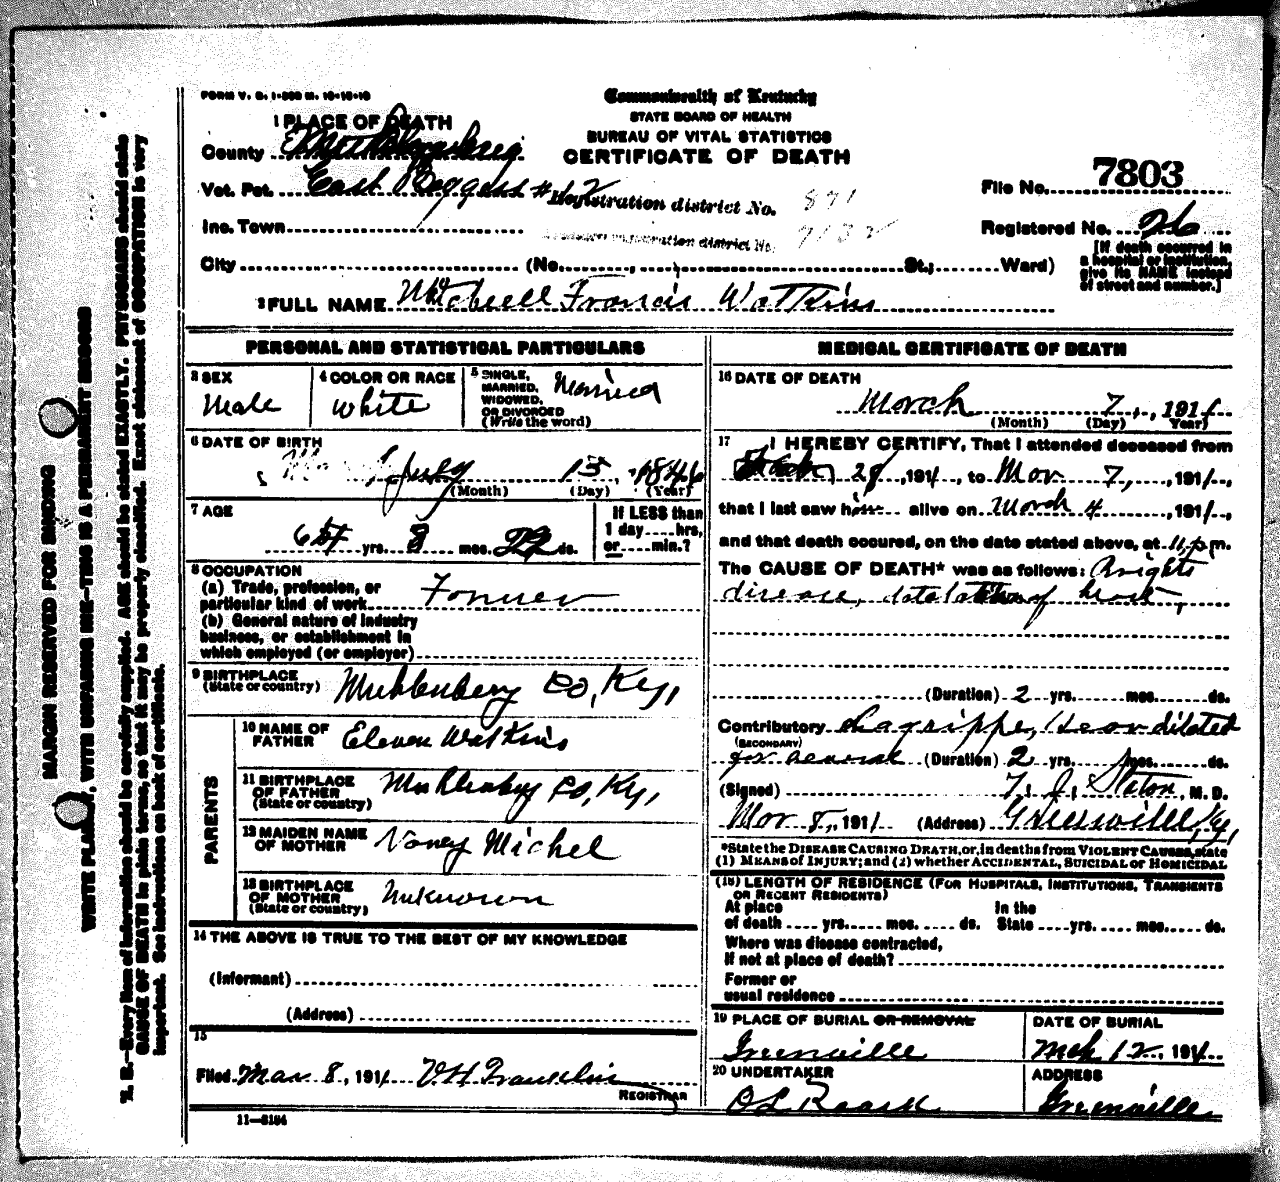 FORM V. S. 1-
Commonwealth of Kentucky
STATE BOARD OF HEALTH
BUREAU OF VITAL STATISTICS
CERTIFICATE OF DEATH
1 PLACE OF DEATH
County Muhlenberg
Vot. Pct. East Boggess # 2
Registration district No. 871
Inc. Town
registration district No. 7132
City (No. , St.; Ward)
File No. 7803
Registered No. 26
[If death occurred in
a hospital or institution,
give its NAME instead
of street and number.]
2 FULL NAME Mitchell Francis Watkins
MARGIN RESERVED FOR BINDING
WRITE PLAINLY, WITH UNFADING INK—THIS IS A PERMANENT RECORD
N. B.—Every item of information should be carefully supplied. AGE should be stated EXACTLY. PHYSICIANS should state
CAUSE OF DEATH in plain terms, so that it may be properly classified. Exact statement of OCCUPATION is very
important. See instructions on back of certificate.
PERSONAL AND STATISTICAL PARTICULARS
3 SEX
Male
4 COLOR OR RACE
White
5 SINGLE,
MARRIED,
WIDOWED,
OR DIVORCED
(Write the word)
Married
6 DATE OF BIRTH
July 15, 1846
(Month) (Day) (Year)
7 AGE
yrs. 8 mos. 22 ds.
If LESS than
1 day hrs,
or min.?
8 OCCUPATION
(a) Trade, profession, or
particular kind of work Farmer
(b) General nature of industry
business, or establishment in
which employed (or employer)
9 BIRTHPLACE
(State or country) Muhlenberg Co, Ky,
PARENTS
10 NAME OF
FATHER Eleven Watkins
11 BIRTHPLACE
OF FATHER
(State or country) Muhlenberg Co, Ky,
12 MAIDEN NAME
OF MOTHER Nancy Michel
13 BIRTHPLACE
OF MOTHER
(State or country) Unknown
14 THE ABOVE IS TRUE TO THE BEST OF MY KNOWLEDGE
(Informant)
(Address)
15
Filed Mar 8, 1911 V H Franklin
REGISTRAR
11—3184
MEDICAL CERTIFICATE OF DEATH
16 DATE OF DEATH
March 7, 1911
(Month) (Day) Year)
17 I HEREBY CERTIFY, That I attended deceased from
28, 1911, to Mar 7, 1911,
that I last saw him alive on March 4, 1911,
and that death occured, on the date stated above, at 11 p.m.
The CAUSE OF DEATH* was as follows: Brights
disease, of heart,
(Duration) 2 yrs. mos. ds.
Contributory Lagrippe, Hear dilated
(SECONDARY)
for several (Duration) 2 yrs. mos. ds.
(Signed) T. J. Slaton, M. D.
Mar 8, 1911 (Address) Greenville, Ky,
*State the DISEASE CAUSING DEATH, or, in deaths from VIOLENT CAUSES, state
(1) MEANS OF INJURY; and (2) whether ACCIDENTAL, SUICIDAL or HOMICIDAL
(18) LENGTH OF RESIDENCE (FOR HOSPITALS, INSTITUTIONS, TRANSIENTS
OR RECENT RESIDENTS)
At place
of death yrs. mos. ds.
In the
State yrs. mos. ds.
Where was disease contracted,
If not at place of death?
Former or
usual residence
19 PLACE OF BURIAL OR REMOVAL
Greenville
DATE OF BURIAL
Mch 12, 1911
20 UNDERTAKER
O L Roark
ADDRESS
Greenville